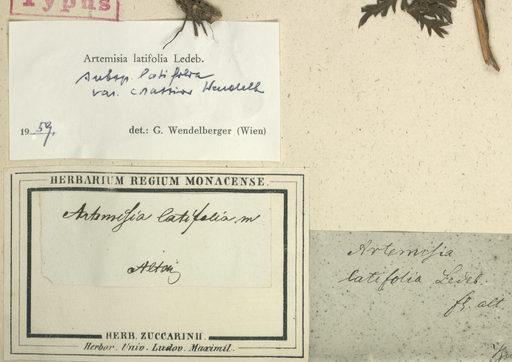 Typus
Artemisia latifolia Ledeb.
subsp. latifolia
var. crassior Wendelb
19 59.
det.: G. Wendelberger (Wien)
HERBARIUM REGIUM MONACENSE.
Artemisia latifolia m
Altai
HERB. ZUCCARINII
Herbar. Univ. Ludov. Maximil.
Artemisia
latifolia Ledeb.
fl. alt.